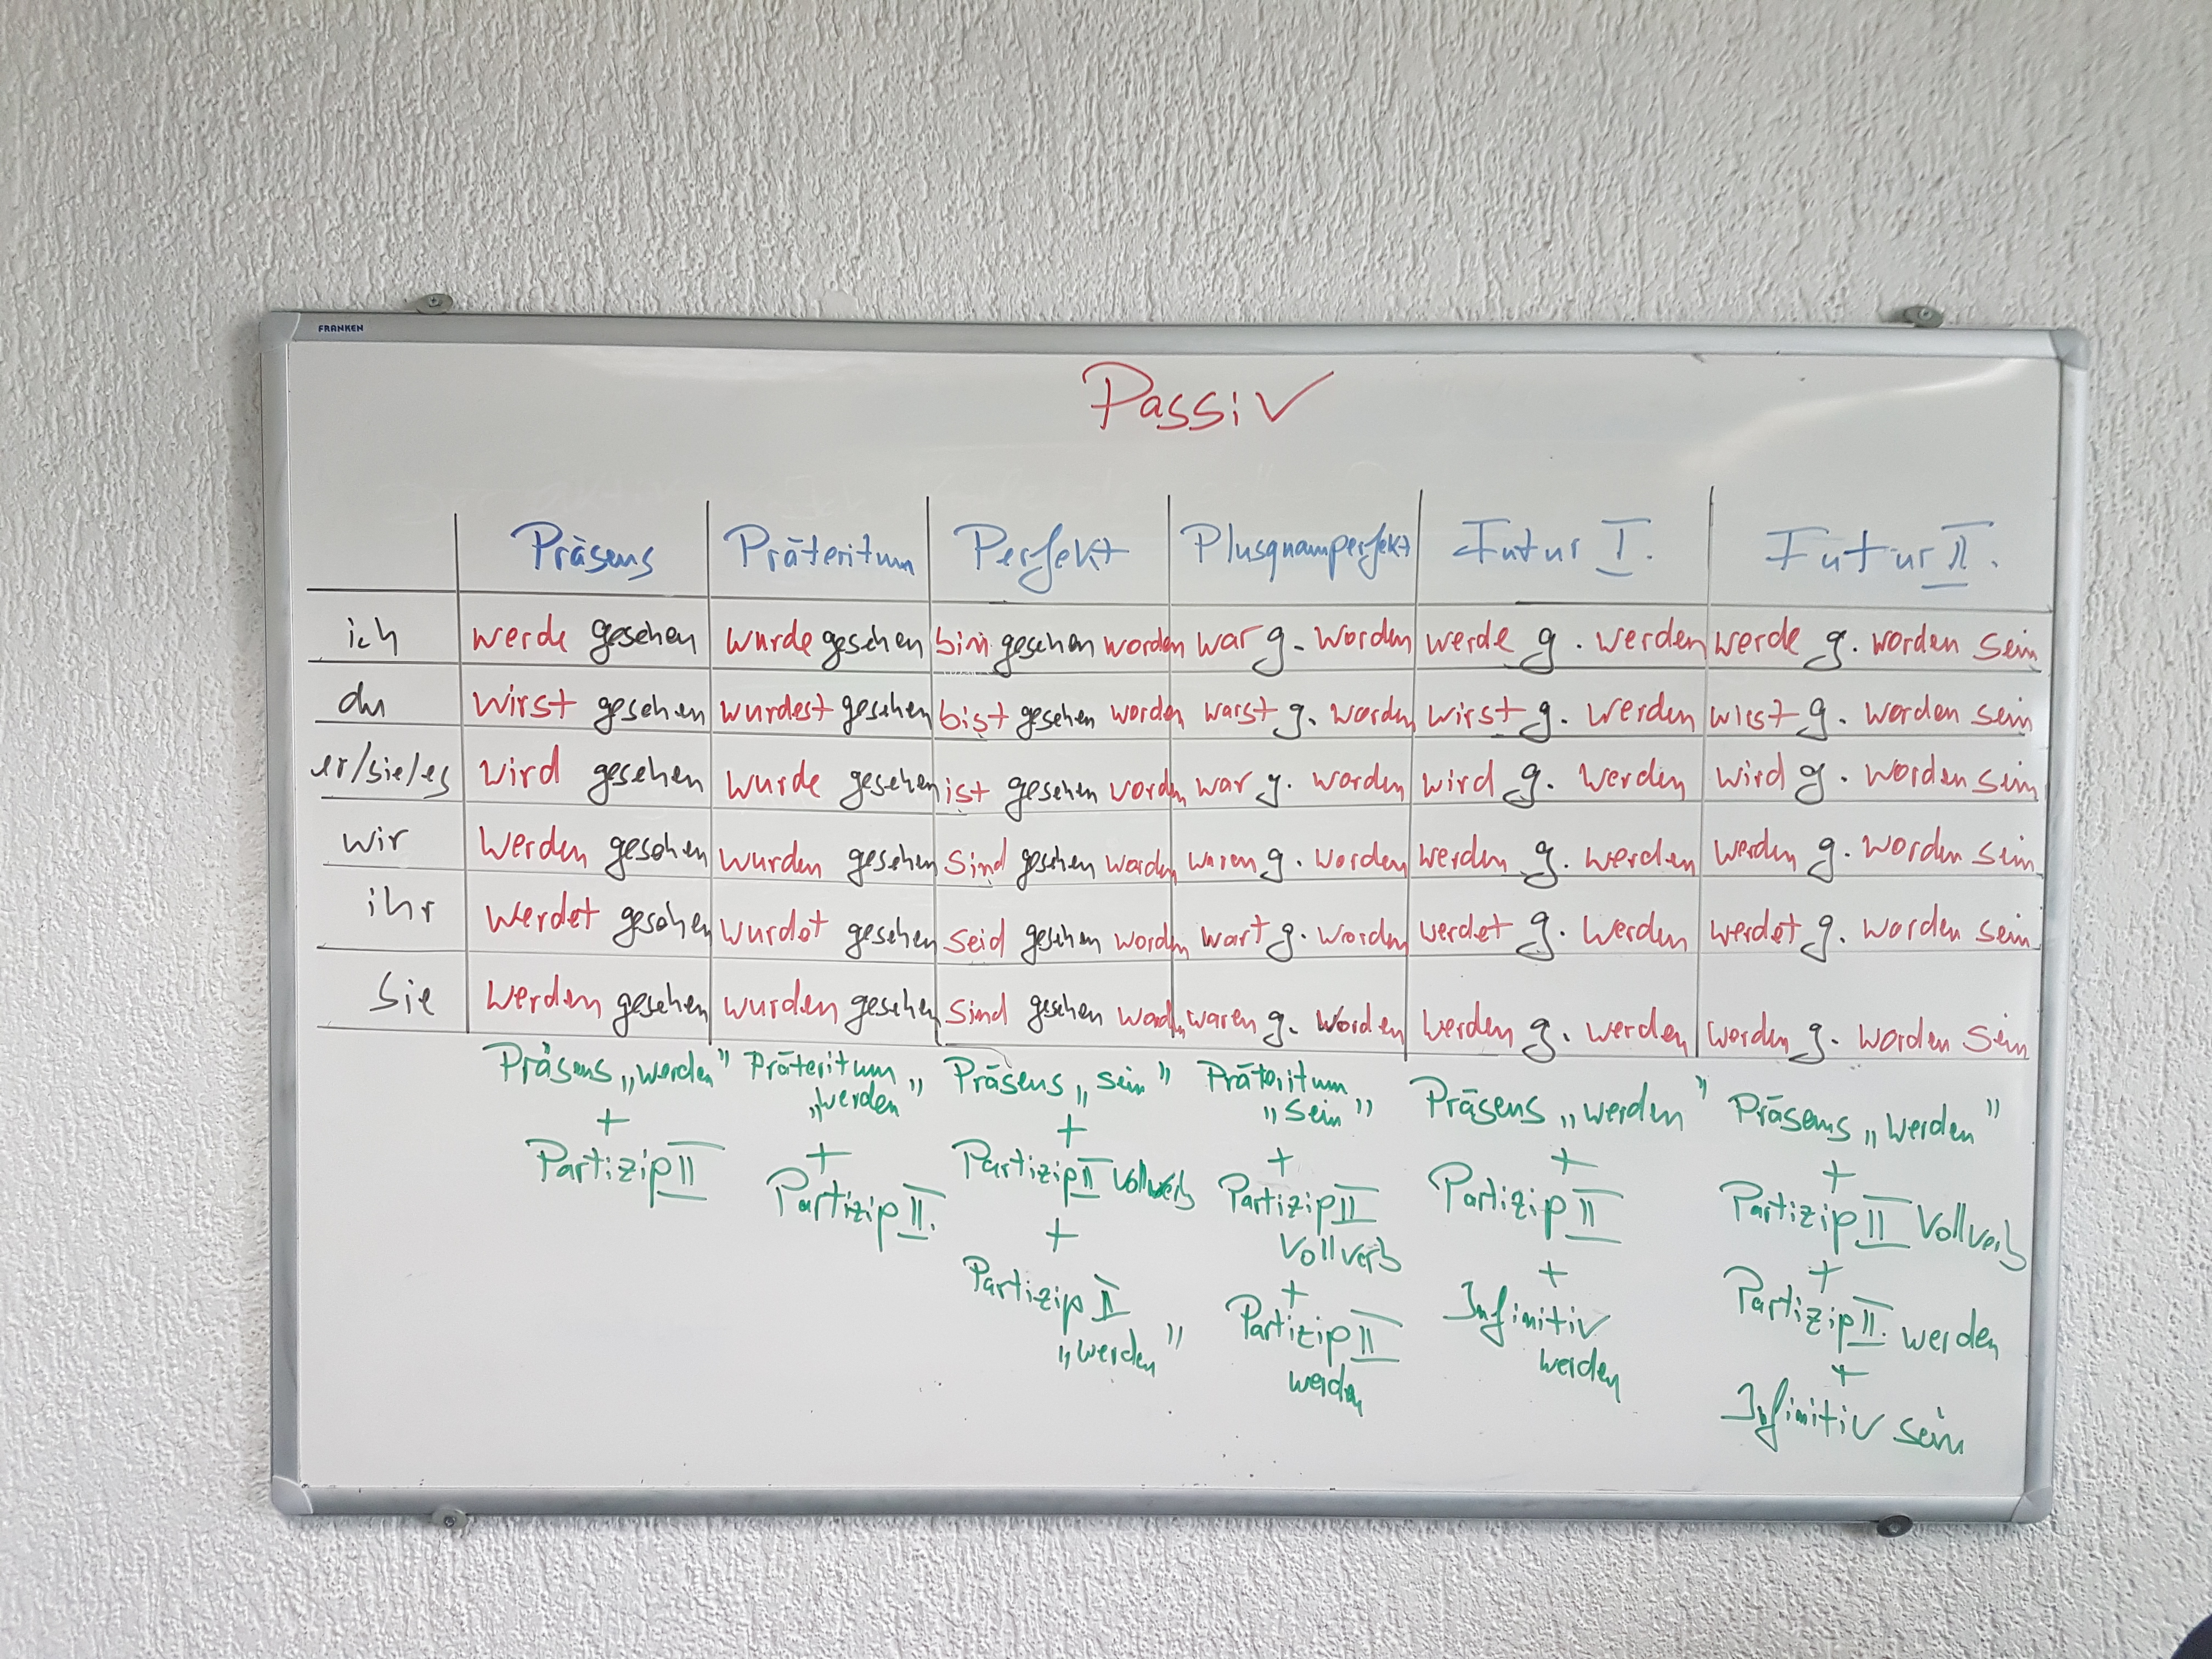 FRANKEN
Passiv
Präsens Präteritum Perfekt Plusquamperfekt Futur I. Futur II.
ich werde gesehen wurde gesehen bin gesehen worden war g. worden werde g. werden werde g. worden sein
du wirst gesehen wurdest gesehen bist gesehen worden warst g. worden wirst g. werden wirst g. worden sein
er/sie/es wird gesehen wurde gesehen ist gesehen worden war g. worden wird g. werden wird g. worden sein
wir werden gesehen wurden gesehen sind gesehen worden waren g. worden werden g. werden werden g. worden sein
ihr werdet gesehen wurdet gesehen seid gesehen worden wart g. worden werdet g. werden werdet g. worden sein
Sie werden gesehen wurden gesehen sind gesehen worden waren g. worden werden g. werden werden g. worden sein
Präsens „werden”
+
Partizip II
Präteritum
„werden”
+
Partizip II.
Präsens „sein”
+
Partizip II Vollverb
+
Partizip II
„werden”
Präteritum
„sein”
+
Partizip II
Vollverb
+
Partizip II
werden
Präsens „werden”
+
Partizip II
+
Infinitiv
werden
Präsens „werden”
+
Partizip II Vollverb
+
Partizip II. werden
+
Infinitiv sein